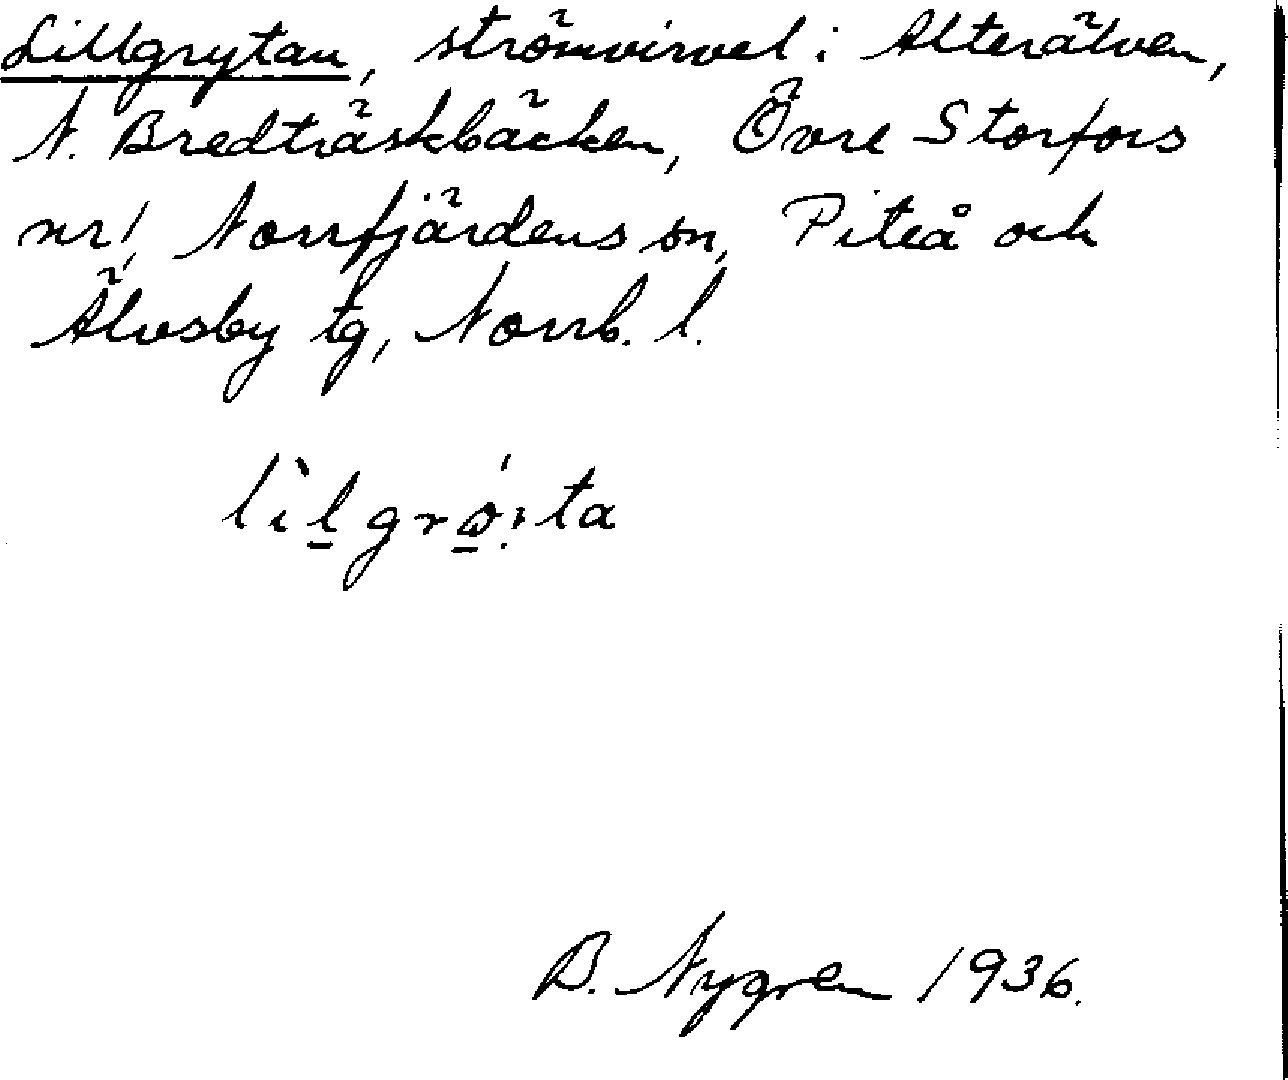 Lillgrytan, strömvirvel i Alterälven,
N. Bredträskbäcken, Övre Storfors
nr 1, Norrfjärdens sn, Piteå och
Älvsby tg, Norrb. l.
lìlgrǿ:ta
B. Nygren 1936.